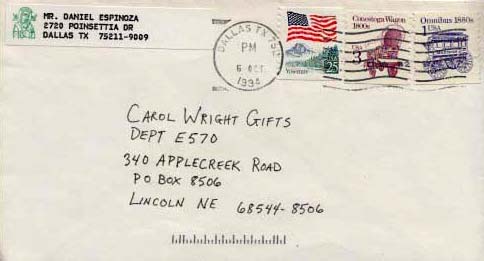 MR. DANIEL ESPINOZA
2720 POINSETTIA DR
DALLAS TX 75211-9009
DALLAS TX 752
PM
6 OCT
1994
Yosemite
25
Conestoga Wagon
1800s
3
USA
Omnibus 1880s
1USA
CAROL WRIGHT GIFTS
DEPT E570
340 APPLECREEK ROAD
PO BOX 8506
LINCOLN NE 68544-8506